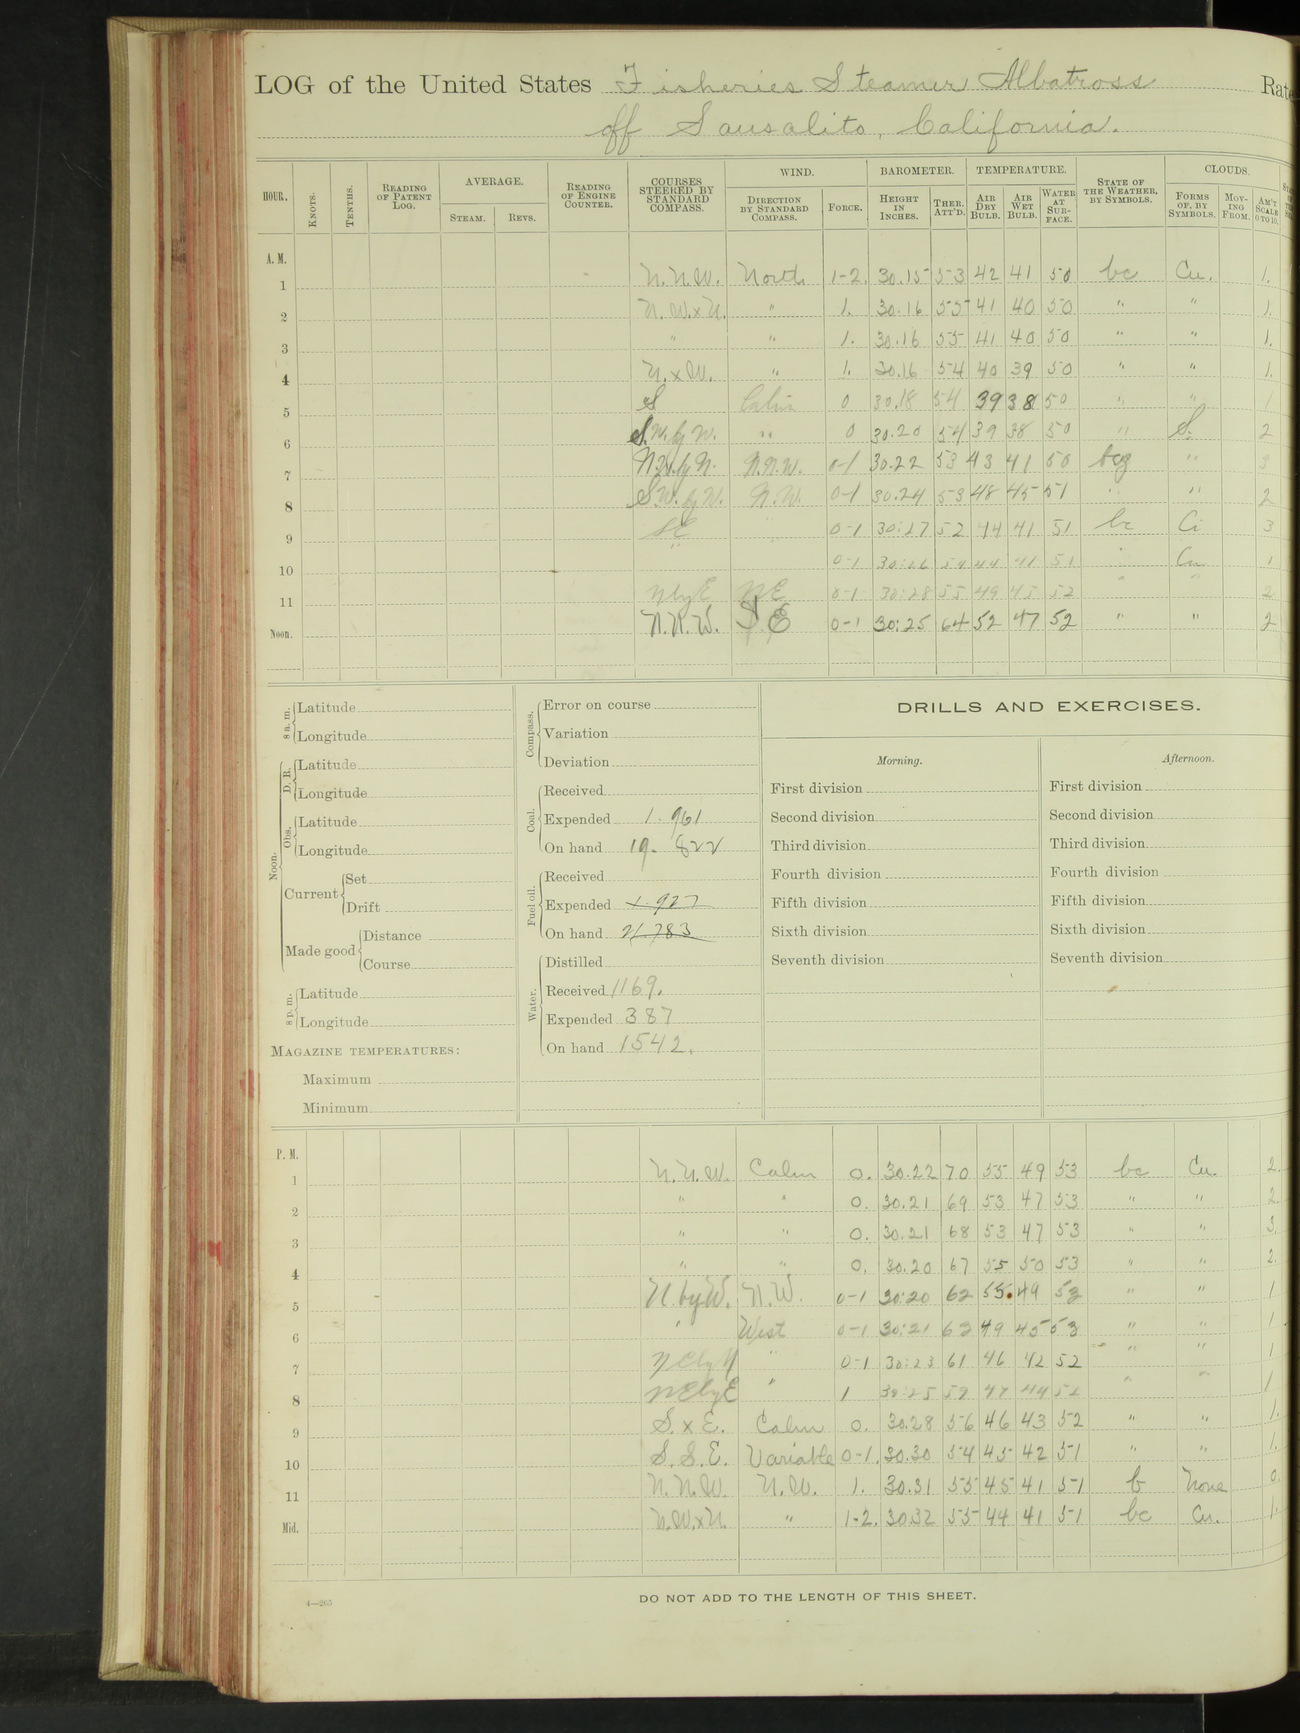 LOG of the United States Fisheries Steamer Albatross Rate
off Sausalito, California.
HOUR. KNOTS. TENTHS. READING OF PATENT LOG. AVERAGE. STEAM. REVS. READING OF ENGINE COUNTER. COURSES STEERED BY STANDARD COMPASS. WIND. DIRECTION BY STANDARD COMPASS. FORCE. BAROMETER. HEIGHT IN INCHES. THER. ATT'D. TEMPERATURE. AIR DRY BULB. AIR WET BULB. WATER AT SURFACE. STATE OF THE WEATHER, BY SYMBOLS. CLOUDS. FORMS OF, BY SYMBOLS. MOVING FROM. AM'T SCALE 0 TO 10.
A. M.
1 N.N.W. North 1-2. 30.15 53 42 41 50 bc Cu. 1.
2 N.W.xN. " 1. 30.16 55 41 40 50 " " 1.
3 " " 1. 30.16 55 41 40 50 " " 1.
4 N.xW. " 1. 30.16 54 40 39 50 " " 1.
5 S Calm 0 30.18 54 39 38 50 " " 1
6 S.W. by W. " 0 30.20 54 39 38 50 " S. 2
7 N.W. by N. N.N.W. 0-1 30.22 53 43 41 50 bcz " 3
8 S.W. by W. N.W. 0-1 30.24 53 48 45 51 " " 2
9 SE " 0-1 30.27 52 44 41 51 bc Ci 3
10 " 0-1 30.26 54 44 41 51 " Cu 1
11 N by E NE 0-1 30.28 55 49 45 52 " " 2
Noon. N.N.W. S E 0-1 30.25 64 52 47 52 " " 2
8 a. m. Latitude
Longitude
Noon. D. R. Latitude
Longitude
Obs. Latitude
Longitude
Current Set
Drift
Made good Distance
Course
8 p. m. Latitude
Longitude
MAGAZINE TEMPERATURES:
Maximum
Minimum
Compass. Error on course
Variation
Deviation
Coal. Received
Expended 1.961
On hand 19.822
Fuel oil. Received
Expended 1.927
On hand 21.783
Water. Distilled
Received 1169.
Expended 387
On hand 1542.
DRILLS AND EXERCISES.
Morning. Afternoon.
First division First division
Second division Second division
Third division Third division
Fourth division Fourth division
Fifth division Fifth division
Sixth division Sixth division
Seventh division Seventh division
P. M.
1 N.N.W. Calm 0. 30.22 70 55 49 53 bc Cu. 2.
2 " " 0. 30.21 69 53 47 53 " " 2.
3 " " 0. 30.21 68 53 47 53 " " 3.
4 " " 0. 30.20 67 55 50 53 " " 2.
5 N by W. N.W. 0-1 30.20 62 55 49 53 " " 1
6 " West 0-1 30.21 62 49 45 53 " " 1
7 NE by N " 0-1 30.23 61 46 42 52 " " 1
8 NE by E " 1 30.25 59 47 44 52 " " 1
9 S.xE. Calm 0. 30.28 56 46 43 52 " " 1.
10 S.S.E. Variable 0-1. 30.30 54 45 42 51 " " 1.
11 N.N.W. N.W. 1. 30.31 55 45 41 51 b None 0.
Mid. N.W.xN. " 1-2. 30.32 55 44 41 51 bc Cu. 1.
4—265
DO NOT ADD TO THE LENGTH OF THIS SHEET.